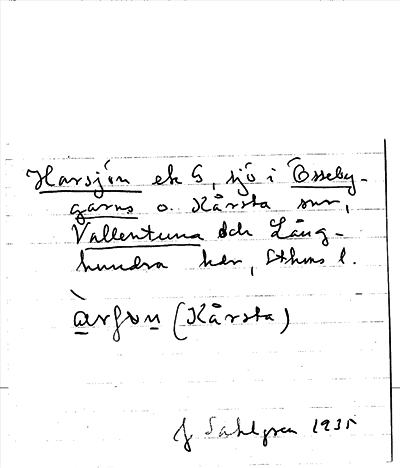 Harsjön ek 5, sjö i Össeby-
garns o. Kårsta snr,
Vallentuna och Lång-
hundra hdr, Sthms l.
àrʃɷn (Kårsta)
J Sahlgren 1935